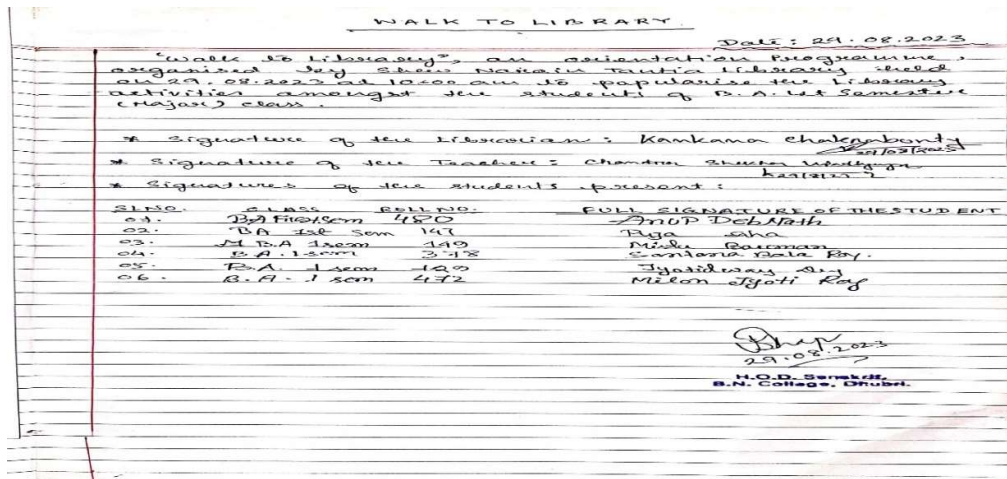 WALK TO LIBRARY.
Date: 29.08.2023
"Walk to Library", an orientation Programme,
organised by Shew Narain Tantia Library held
on 29.08.2023 at 10:00 am to popularise the Library
activities amongst the students of B.A. 1st Semester
(Major) class.
* Signature of the Librarian: Kankana Chakrabonty
* Signature of the Teacher: Chandra Shekhar
* Signatures of the students present:
SL NO. CLASS ROLL NO. FULL SIGNATURE OF THE STUDENT
01. BA First Sem 480 Anup Deb Nath
02. BA 1st Sem 147 Puja
03. B.A 1sem 149 Barman
04. B.A. 1sem 378 Santana Bala Roy.
05. B.A. 1 sem
06. B.A. 1 sem 472 Milon Jyoti Ray
29.08.2023
H.O.D. Sanskrit,
B.N. College, Dhubri.